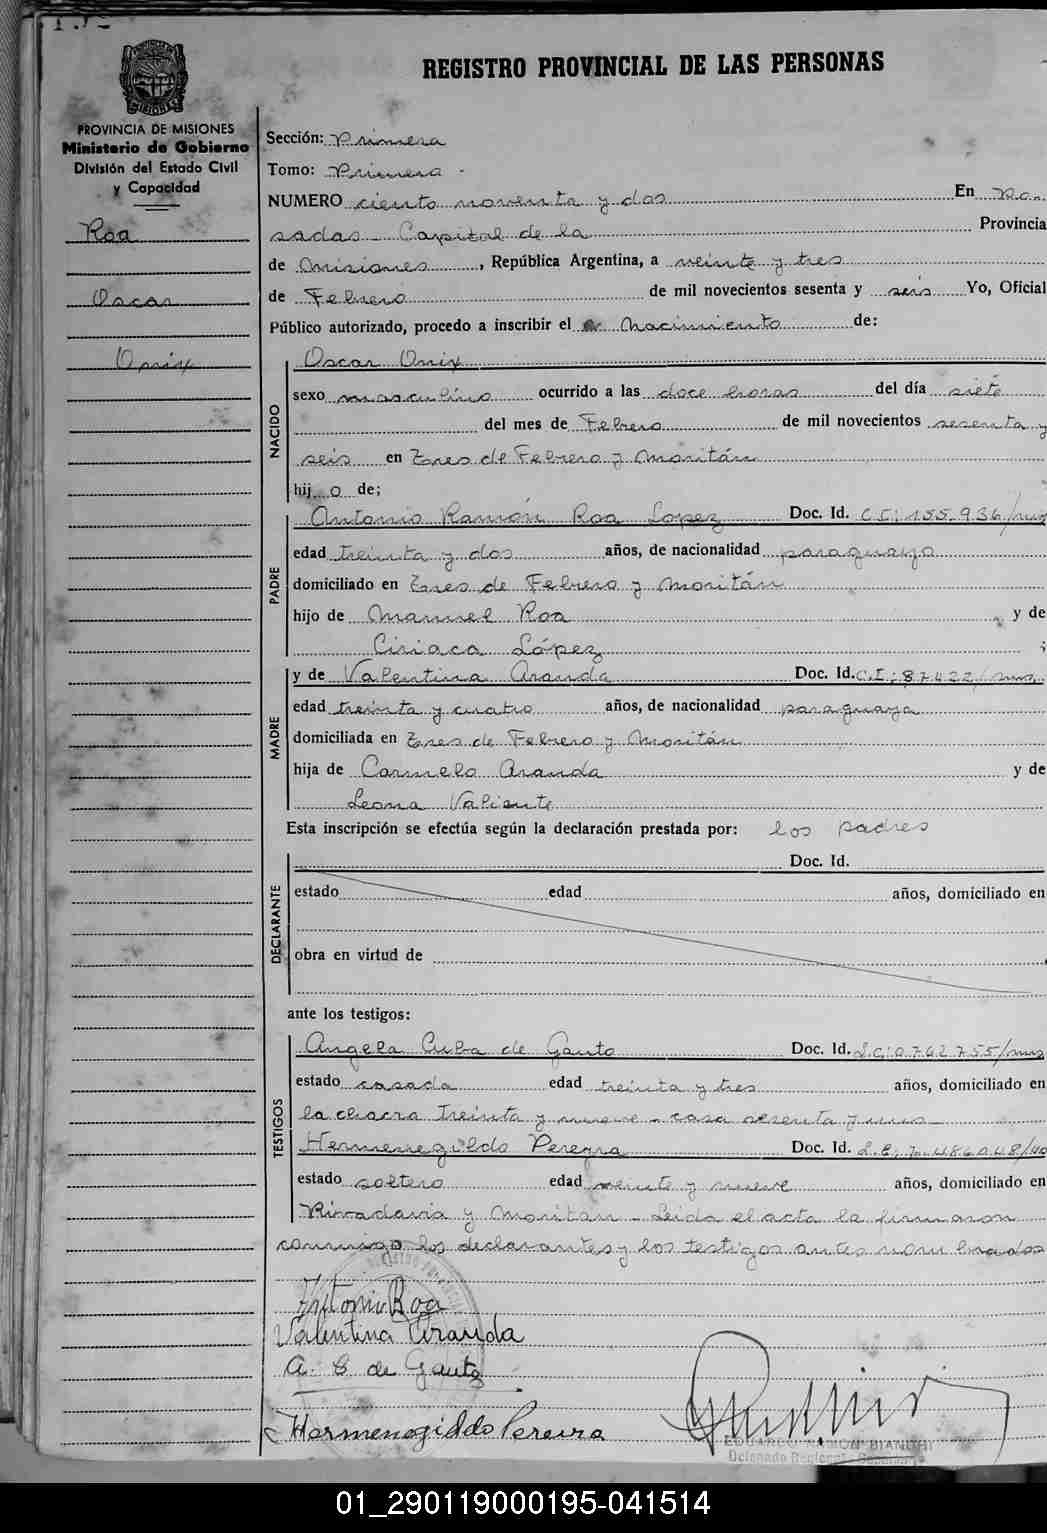 REGISTRO PROVINCIAL DE LAS PERSONAS
PROVINCIA DE MISIONES
Ministerio de Gobierno
División del Estado Civil
y Capacidad
Roa
Oscar
Onix
Sección: Primera
Tomo: Primera
NUMERO ciento noventa y dos En Po-
sadas - Capital de la Provincia
de Misiones, República Argentina, a veinte y tres
de Febrero de mil novecientos sesenta y seis Yo, Oficial
Público autorizado, procedo a inscribir el Nacimiento de:
NACIDO
Oscar Onix
sexo masculino ocurrido a las doce horas del día siete
del mes de Febrero de mil novecientos sesenta y
seis en Tres de Febrero y Moritán
hijo de;
PADRE
Antonio Ramón Roa Lopez Doc. Id. C.I: 155.936/mns
edad treinta y dos años, de nacionalidad paraguayo
domiciliado en Tres de Febrero y Moritán
hijo de Manuel Roa y de
Ciriaca López ;
MADRE
y de Valentina Aranda Doc. Id. C.I: 87422/mns
edad treinta y cuatro años, de nacionalidad paraguaya
domiciliada en Tres de Febrero y Moritán
hija de Carmelo Aranda y de
Leona Valiente
Esta inscripción se efectúa según la declaración prestada por: los padres
DECLARANTE
Doc. Id.
estado edad años, domiciliado en
obra en virtud de
ante los testigos:
TESTIGOS
Angela Cuba de Gauto Doc. Id. L.C: 0.762.755/mns
estado casada edad treinta y tres años, domiciliado en
la chacra treinta y nueve - casa sesenta y uno-
Hermenegildo Pereyra Doc. Id. L.E: 7.486.048/
estado soltero edad veinte y nueve años, domiciliado en
Rivadavia y Moritán - Leida el acta la firmaron
conmigo los declarantes y los testigos antes nombrados
Antonio Roa
Valentina Aranda
A. C de Gauto
Hermenegildo Pereira
EDUARDO RAMON BIANCHI
Delegado Regional
01_290119000195-041514